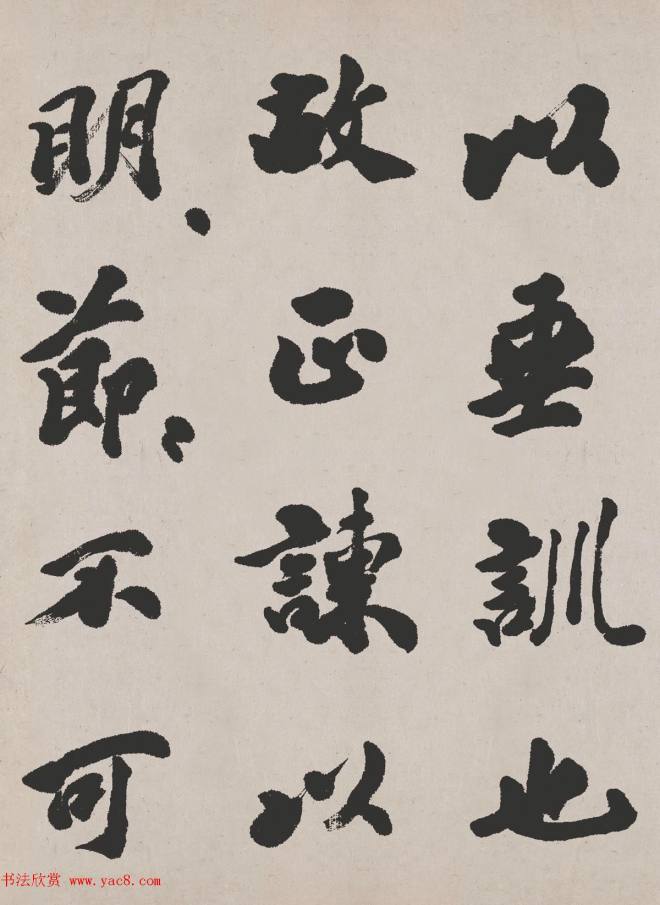 以垂訓也
故正諫以
明〻節〻不可
书法欣赏 www.yac8.com